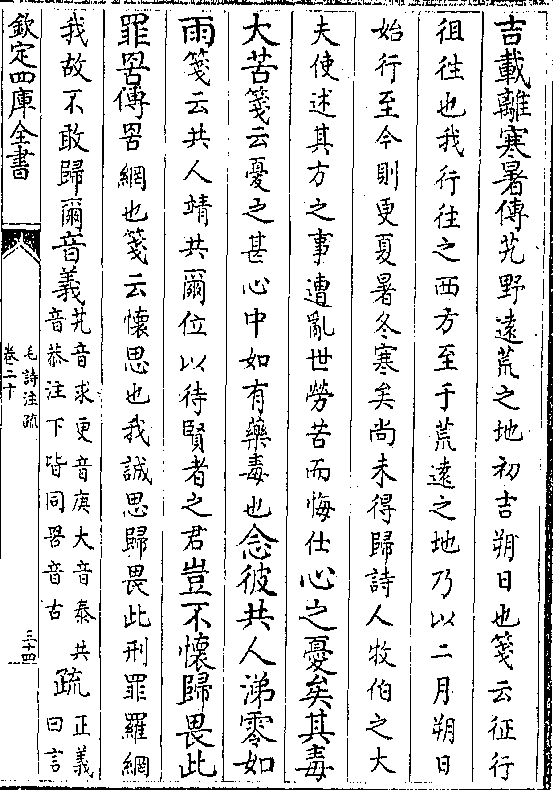 吉載離寒暑傳艽野遠荒之地初吉朔日也箋云征行
徂往也我行往之西方至于荒遠之地乃以二月朔日
始行至今則更夏暑冬寒矣尚未得歸詩人牧伯之大
夫使述其方之事遭亂世勞苦而悔仕心之憂矣其毒
大苦箋云憂之甚心中如有藥毒也念彼共人涕零如
雨箋云共人靖共爾位以待賢者之君豈不懷歸畏此
罪罟傳罟網也箋云懷思也我誠思歸畏此刑罪羅網
我故不敢歸爾音義艽音求更音庚大音泰共
音恭注下皆同罟音古
疏正義
曰言
欽定四庫全書
毛詩注疏
卷二十
三十四